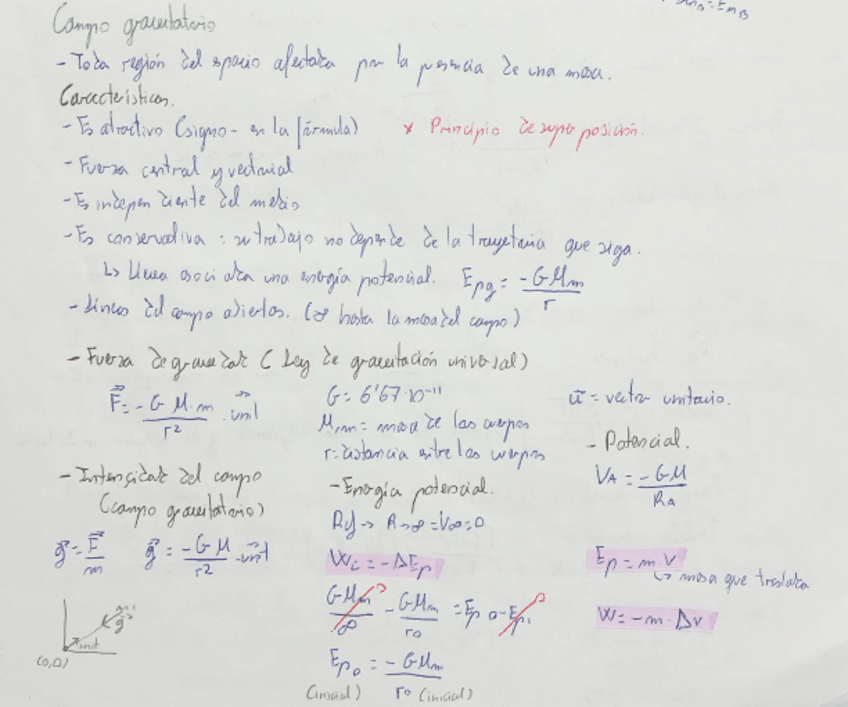 Campo gravitatorio
- Toda región del espacio afectada por la presencia de una masa.
Características.
- Es atractivo (signo - en la fórmula) * Principio de superposición.
- Fuerza central y vectorial
- Es independiente del medio
- Es conservativa : su trabajo no depende de la trayectoria que siga.
↳ Lleva asociada una energía potencial. Epg = -GMm / r
- Líneas del campo abiertas. (∞ hasta la masa del campo)
- Fuerza de gravedad (Ley de gravitación universal)
F⃗ = -G M·m / r² · unit
G = 6'67·10⁻¹¹
M,m = masa de los cuerpos
r = distancia entre los cuerpos
u⃗ = vector unitario.
- Intensidad del campo
(campo gravitatorio)
g⃗ = F⃗ / m g⃗ = -G M / r² · unit
(0,0) unit g⃗
- Energía potencial.
Ref → R→∞ = V∞ = 0
Wc = -ΔEp
GMm / ∞ - GMm / r₀ = Ep₀ - Ep₁
Ep₀ = -GMm / r₀
(inicial) (inicial)
- Potencial.
VA = -GM / RA
Ep = m·V
↳ masa que traslada
W = -m·ΔV